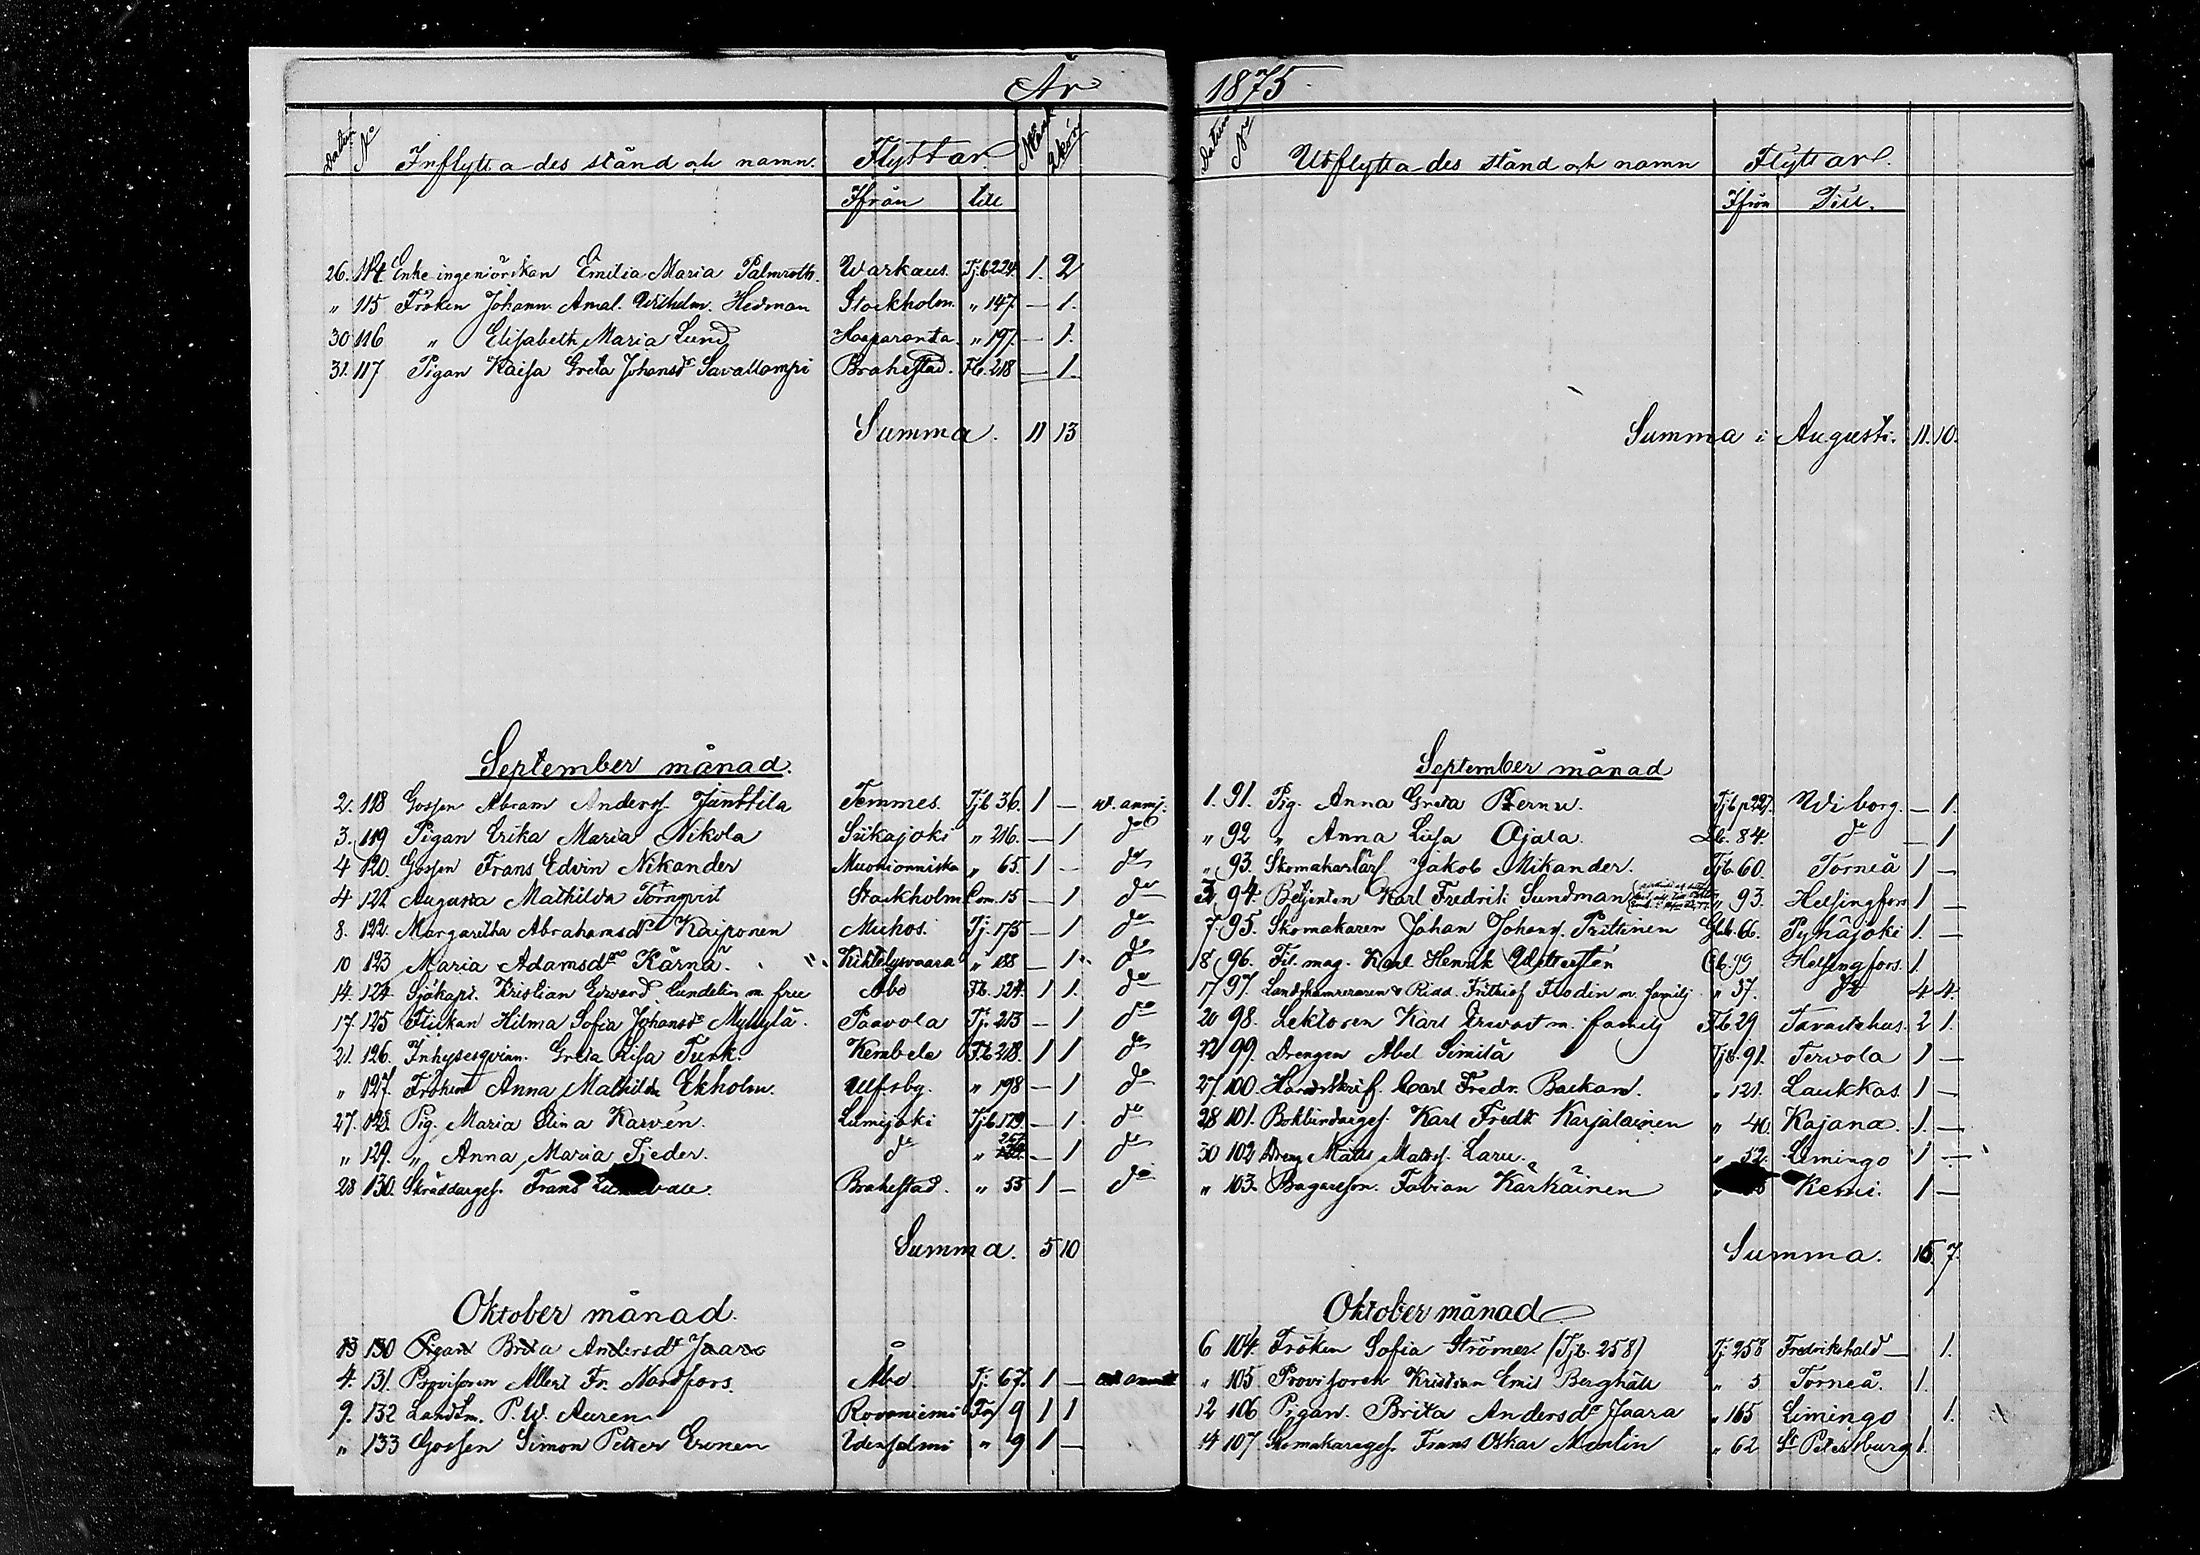 År
Datum No Inflyttades stånd och namn. Flyttar Mank. Qkön
Ifrån till
26. 114 Enke ingeniörskan Emilia Maria Palmroth. Warkaus. Tjb 224. 1. 2
" 115 Fröken Johann. Amal. Wilhelm. Hedman Stockholm. " 147. — 1.
30 116 " Elisabeth Maria Lund Haaparanta. " 197. — 1.
31. 117 Pigan Kaisa Greta Johansdr Savallampi Brahestad. Fb. 218 — 1.
Summa. 11 13
September månad.
2. 118 Gossen Abram Andersf. Junttila Temmes. Tjb 36. 1 — ut. anmj.
3. 119 Pigan Erika Maria Nikola Siikajoki " 216. — 1 do
4 120. Gossen Frans Edvin Nikander Muonionniska " 65. 1 — do
4 121 Augusta Mathilda Törnqvist Stockholm Com. 15 — 1 do
8. 122. Margaretha Abrahamsdr Kaiponen Muhos. Tj. 175 — 1 do
10 123 Maria Adamsdr Kärnä. Kiktelysvaara " 188 — 1. do
14. 124. Sjökapt. Kristian Edvard Lundelin m. fru Åbo Fb. 124. 1 1. do
17. 125 Flickan Hilma Sofia Johansdr Myllylä. Paavola Tj. 213 — 1 do
21. 126. Inhysesqvinn. Greta Lisa Turk. Kembele Fb 218. 1 1 do
" 127. Fröken Anna Mathilda Ekholm. Ulfsbg. " 198 — 1 do
27. 128. Pig. Maria Elina Karvén. Lumijoki Tjb 179. — 1. do
" 129. " Anna Maria Fjeder. do " 257 — 1 do
28 130. Skräddarges. Frans Brahestad. " 55 1 — do
Summa. 5 10
Oktober månad.
13 130 Pigan Brita Andersdr Jaara
4. 131. Provisoren Albert Fr. Nordfors. Åbo Tj. 67. 1 —
9. 132 Landtm. P. W. Auren Rovaniemi Fb 9 1 1
" 133 Gossen Simon Petter Eronen Idensalmi " 9 1 —
1875.
Datum No Utflyttades stånd och namn Flyttar.
Ifrån Till.
Summa i Augusti. 11. 10.
September månad
1. 91. Pig. Anna Greta Pernu. Tjb p 227. Wiborg. — 1.
" 92 " Anna Lisa Ojala Fb. 84. do — 1
" 93. Skomakarlärl Jakob Mikander. Tjb. 60. Torneå 1 —
94. Betjenten Karl Fredrik Sundman " 93. Helsingfors 1 —
7. 95. Skomakaren Johan Johansf. Prittinen Gb. 66. Pyhäjoki 1. —
8 96. Fil. mag. Karl Henrik Wetterstén Cb. 19 Helsingfors. 1.
17 97. Landskamreraren & Ridd. Frithiof Flodin m. familj " 37. do 4 4.
20 98. Lektoren Karl Ervast m. familj Fb. 29 Tavastehus. 2 1.
22 99. Drengen Abel Similä Tjb. 91. Tervola 1 —
27. 100. Handelskrif. Carl Fredr. Backan. " 121. Laukkas. 1 —
28 101. Bokbindarges. Karl Fredr. Karjalainen " 40 Kajana. 1. —
30 102 Dreng Matts Mattsf. Laru. " 52. Limingo 1 —
" 103. Bagareson. Fabian Kärkäinen Kemi. 1 —
Summa. 15. 7.
Oktober månad
6 104. Fröken Sofia Strömer. (Tjb. 258) Tj 258 Fredrikshald — 1.
" 105 Provisoren Kristian Emil Berghäll " 5 Torneå. 1.
12 106 Pigan. Brita Andersdr Jaara " 165 Limingo 1.
14 107. Skomakareges. Frans Oskar Merlin " 62 St Petersburg 1.